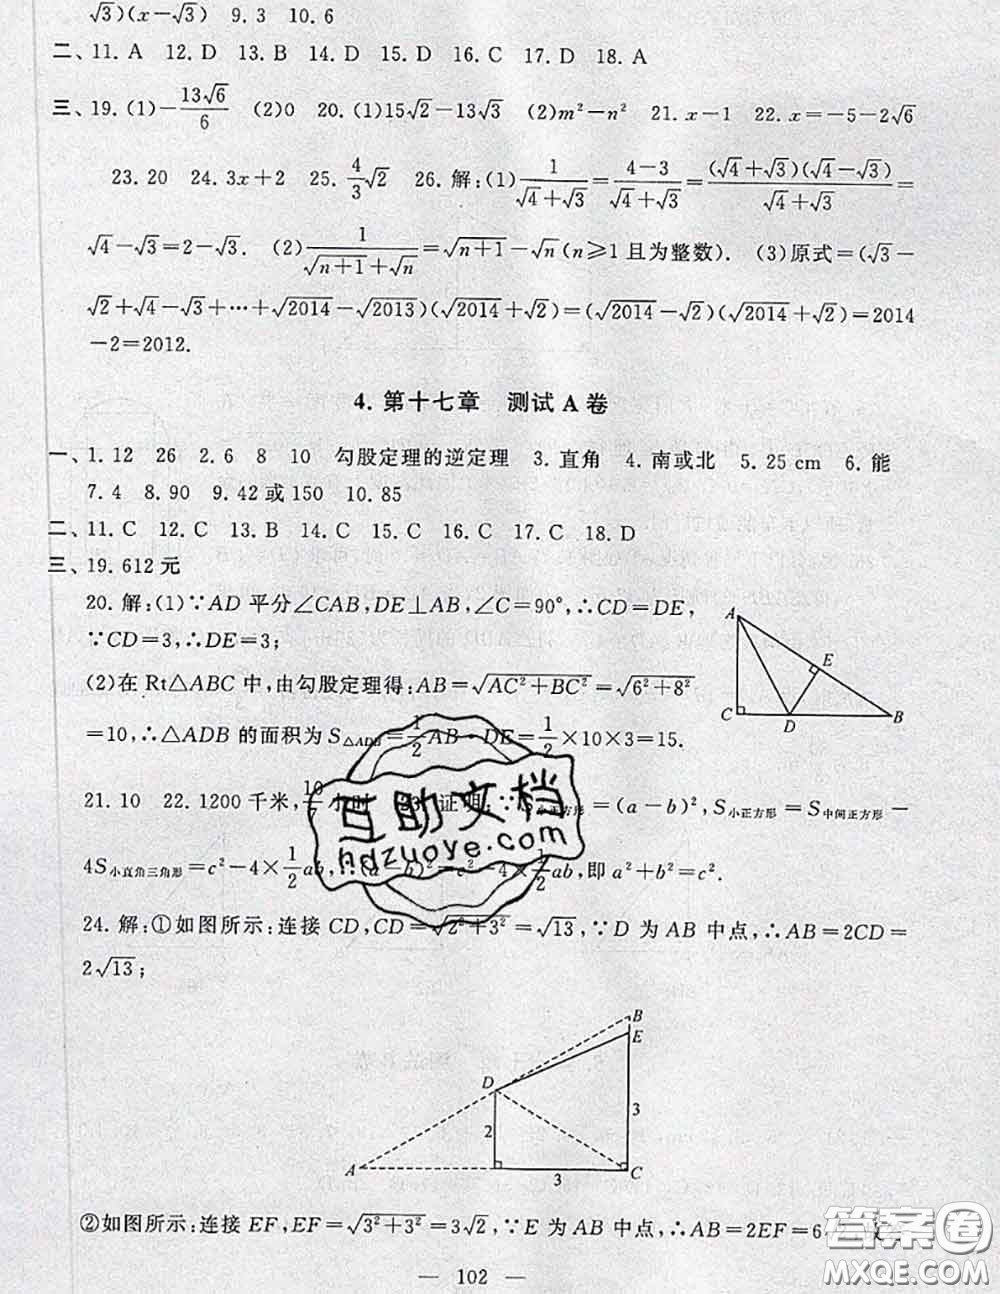 √3)(x-√3)  9.3  10.6
二、11. A  12. D  13. B  14. D  15. D  16. C  17. D  18. A
三、19. (1)-13√6/6  (2)0  20. (1)15√2-13√3  (2)m²-n²  21. x-1  22. x=-5-2√6
23. 20  24. 3x+2  25. 4/3√2  26. 解:(1)1/(√4+√3)=(4-3)/(√4+√3)=(√4+√3)(√4-√3)/(√4+√3)=
√4-√3=2-√3.  (2)1/(√(n+1)+√n)=√(n+1)-√n(n≥1且为整数).  (3)原式=(√3-
√2+√4-√3+…+√2014-√2013)(√2014+√2)=(√2014-√2)(√2014+√2)=2014
-2=2012.
4. 第十七章  测试A卷
一、1. 12  26  2. 6  8  10  勾股定理的逆定理  3. 直角  4. 南或北  5. 25 cm  6. 能
7. 4  8. 90  9. 42或150  10. 85
二、11. C  12. C  13. B  14. C  15. C  16. C  17. C  18. D
三、19. 612元
20. 解:(1)∵AD平分∠CAB,DE⊥AB,∠C=90°,∴CD=DE,
∵CD=3,∴DE=3;
(2)在Rt△ABC中,由勾股定理得:AB=√(AC²+BC²)=√(6²+8²)
=10,∴△ADB的面积为S△ADB=1/2AB·DE=1/2×10×3=15.
A
E
C
D
B
21. 10  22. 1200千米,10/7小时  23. 证明:∵S小正方形=(a-b)²,S小正方形=S中间正方形-
4S小直角三角形=c²-4×1/2ab,∴(a-b)²=c²-4×1/2ab,即a²+b²=c².
互助文档
hdzuoye.com
24. 解:①如图所示:连接CD,CD=√(2²+3²)=√13,∵D为AB中点,∴AB=2CD=
2√13;
B
E
D
3
2
A
3
C
②如图所示:连接EF,EF=√(3²+3²)=3√2,∵E为AB中点,∴AB=2EF=6
— 102 —
答案圈
MXQE.COM